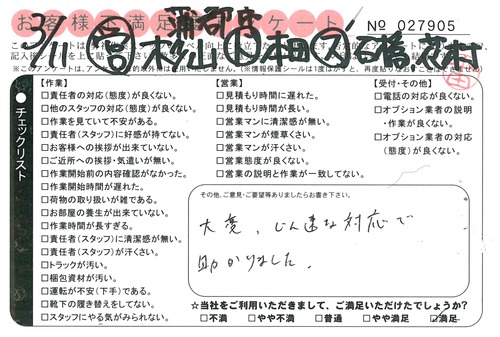 お客様不満足アンケート
No 027905
3/11
チェックリスト
【作業】
□責任者の対応(態度)が良くない。
□他のスタッフの対応(態度)が良くない。
□作業を見ていて不安がある。
□責任者(スタッフ)に好感が持てない。
□お客様への挨拶が出来ていない。
□ご近所への挨拶・気遣いが無い。
□作業開始前の内容確認がなかった。
□作業開始時間が遅れた。
□荷物の取り扱いが雑である。
□お部屋の養生が出来ていない。
□作業時間が長すぎる。
□責任者(スタッフ)に清潔感が無い。
□責任者(スタッフ)が汗くさい。
□トラックが汚い。
□梱包資材が汚い。
□運転が不安(下手)である。
□靴下の履き替えをしてない。
□スタッフにやる気がみられない。
【営業】
□見積もり時間に遅れた。
□見積もり時間が長い。
□営業マンに清潔感が無い。
□営業マンが煙草くさい。
□営業マンが汗くさい。
□営業態度が良くない。
□営業の説明と作業が一致してない。
【受付・その他】
□電話の対応が良くない。
□オプション業者の説明
・作業が良くない。
□オプション業者の対応
(態度)が良くない。
その他、ご意見・ご要望等ありましたらお書き下さい。
大変、じん速な対応で
助かりました。
☆当社をご利用いただきまして、ご満足いただけたでしょうか?
□不満 □やや不満 □普通 □やや満足 ☑満足